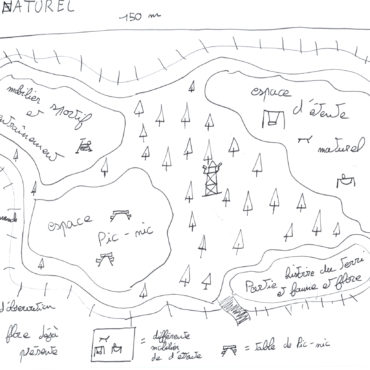 NATUREL
150 m
mobilier sportif
entraînement
espace
d'étente
naturel
espace
Pic-nic
Partie histoire du terril
et faune et flore
d'observation
flore déjà
présente
= différente
mobilier
de d'étente
= table de Pic-nic